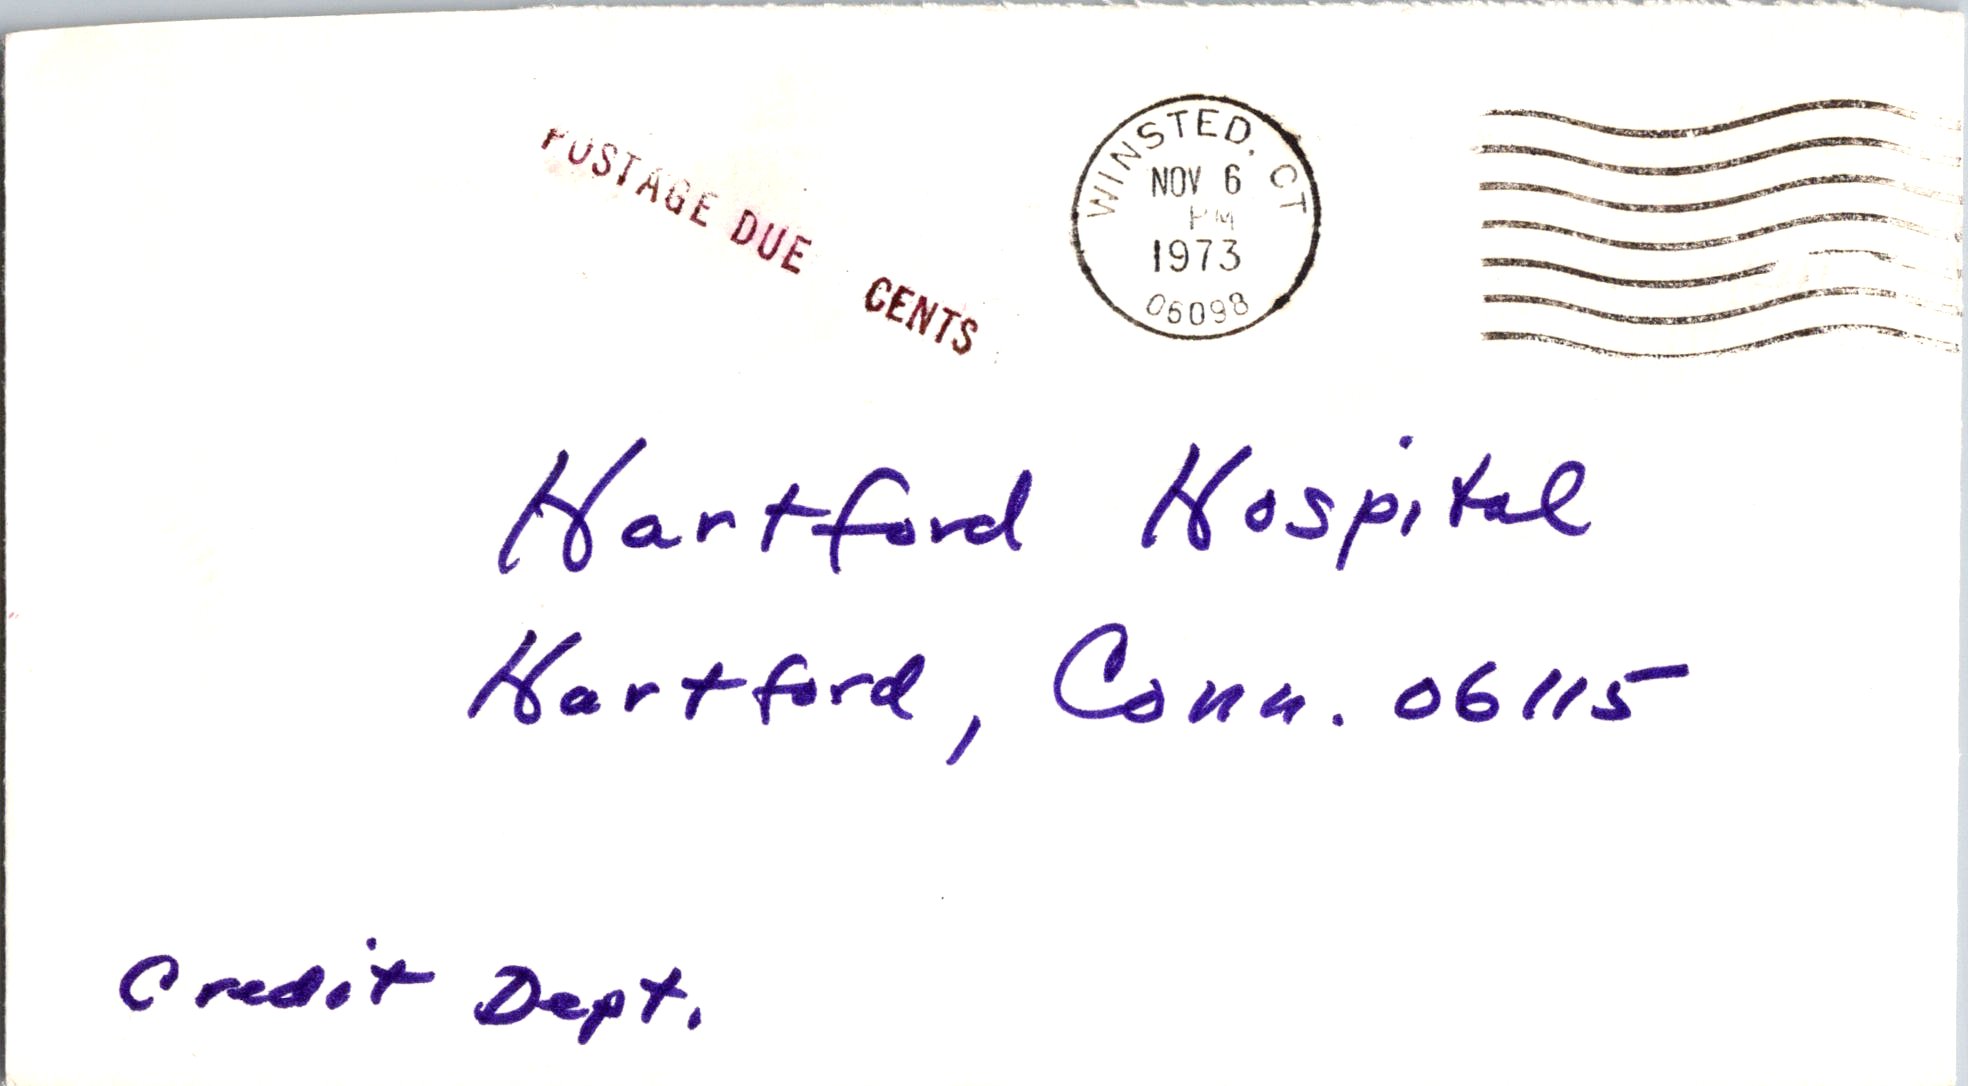 POSTAGE DUE CENTS
WINSTED, CT
NOV 6
PM
1973
06098
Hartford Hospital
Hartford, Conn. 06115
Credit Dept.